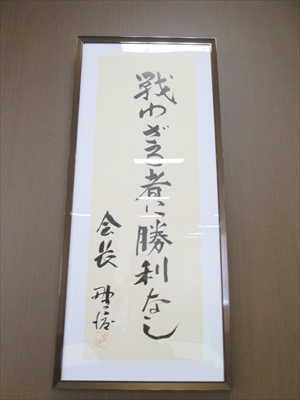 戦わざる者に勝利なし
会長